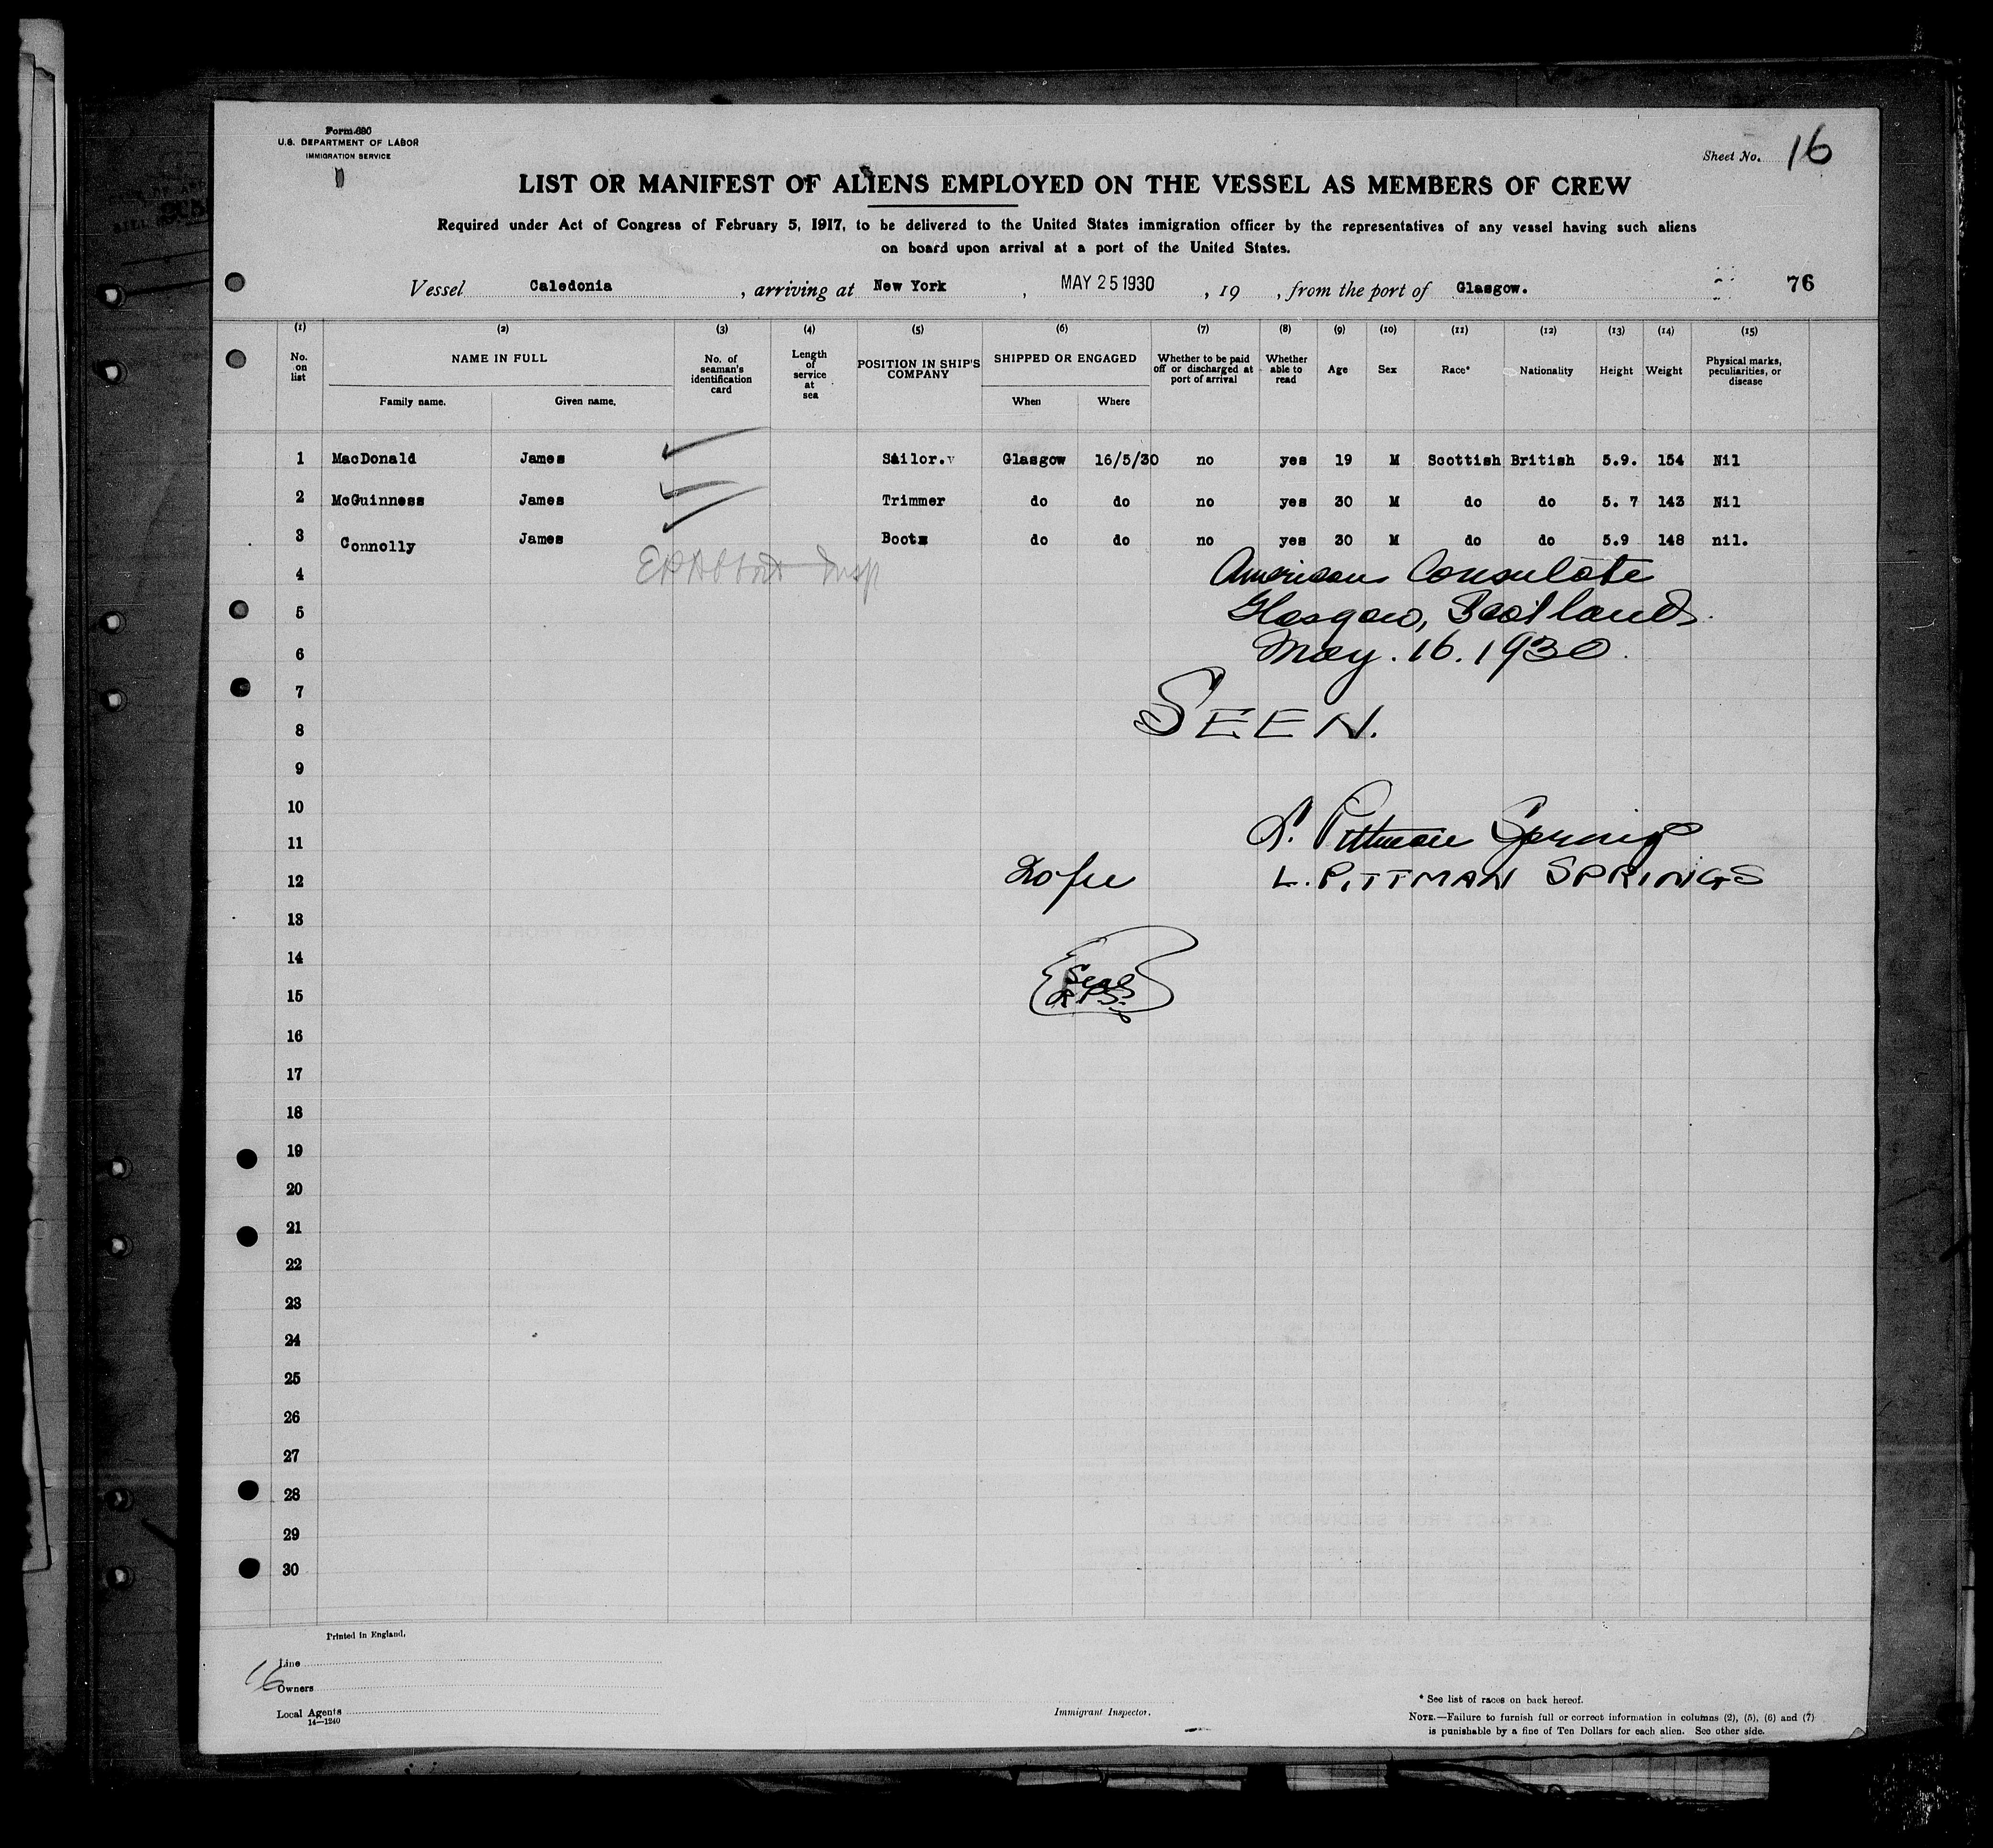 Form 680
U.S. DEPARTMENT OF LABOR
IMMIGRATION SERVICE
Sheet No. 16
LIST OR MANIFEST OF ALIENS EMPLOYED ON THE VESSEL AS MEMBERS OF CREW
Required under Act of Congress of February 5, 1917, to be delivered to the United States immigration officer by the representatives of any vessel having such aliens
on board upon arrival at a port of the United States.
Vessel Caledonia, arriving at New York, MAY 25 1930, 19 , from the port of Glasgow. 76
(1) (2) (3) (4) (5) (6) (7) (8) (9) (10) (11) (12) (13) (14) (15)
No. on list NAME IN FULL Family name. Given name. No. of seaman's identification card Length of service at sea POSITION IN SHIP'S COMPANY SHIPPED OR ENGAGED When Where Whether to be paid off or discharged at port of arrival Whether able to read Age Sex Race* Nationality Height Weight Physical marks, peculiarities, or disease
1 MacDonald James Sailor. Glasgow 16/5/30 no yes 19 M Scottish British 5.9. 154 Nil
2 McGuinness James Trimmer do do no yes 30 M do do 5. 7 143 Nil
3 Connolly James Boots do do no yes 30 M do do 5.9 148 nil.
4 Insp American Consulate
5 Glasgow, Scotland.
6 May. 16. 1930.
7
8 SEEN.
9
10
11 L. Pittman Springs
12 L. PITTMAN SPRINGS
13
14
15 Seal L.P.S.
16
17
18
19
20
21
22
23
24
25
26
27
28
29
30
Printed in England.
Line
16
Owners
Local Agents
14—1240
Immigrant Inspector.
* See list of races on back hereof.
NOTE.—Failure to furnish full or correct information in columns (2), (5), (6) and (7)
is punishable by a fine of Ten Dollars for each alien. See other side.